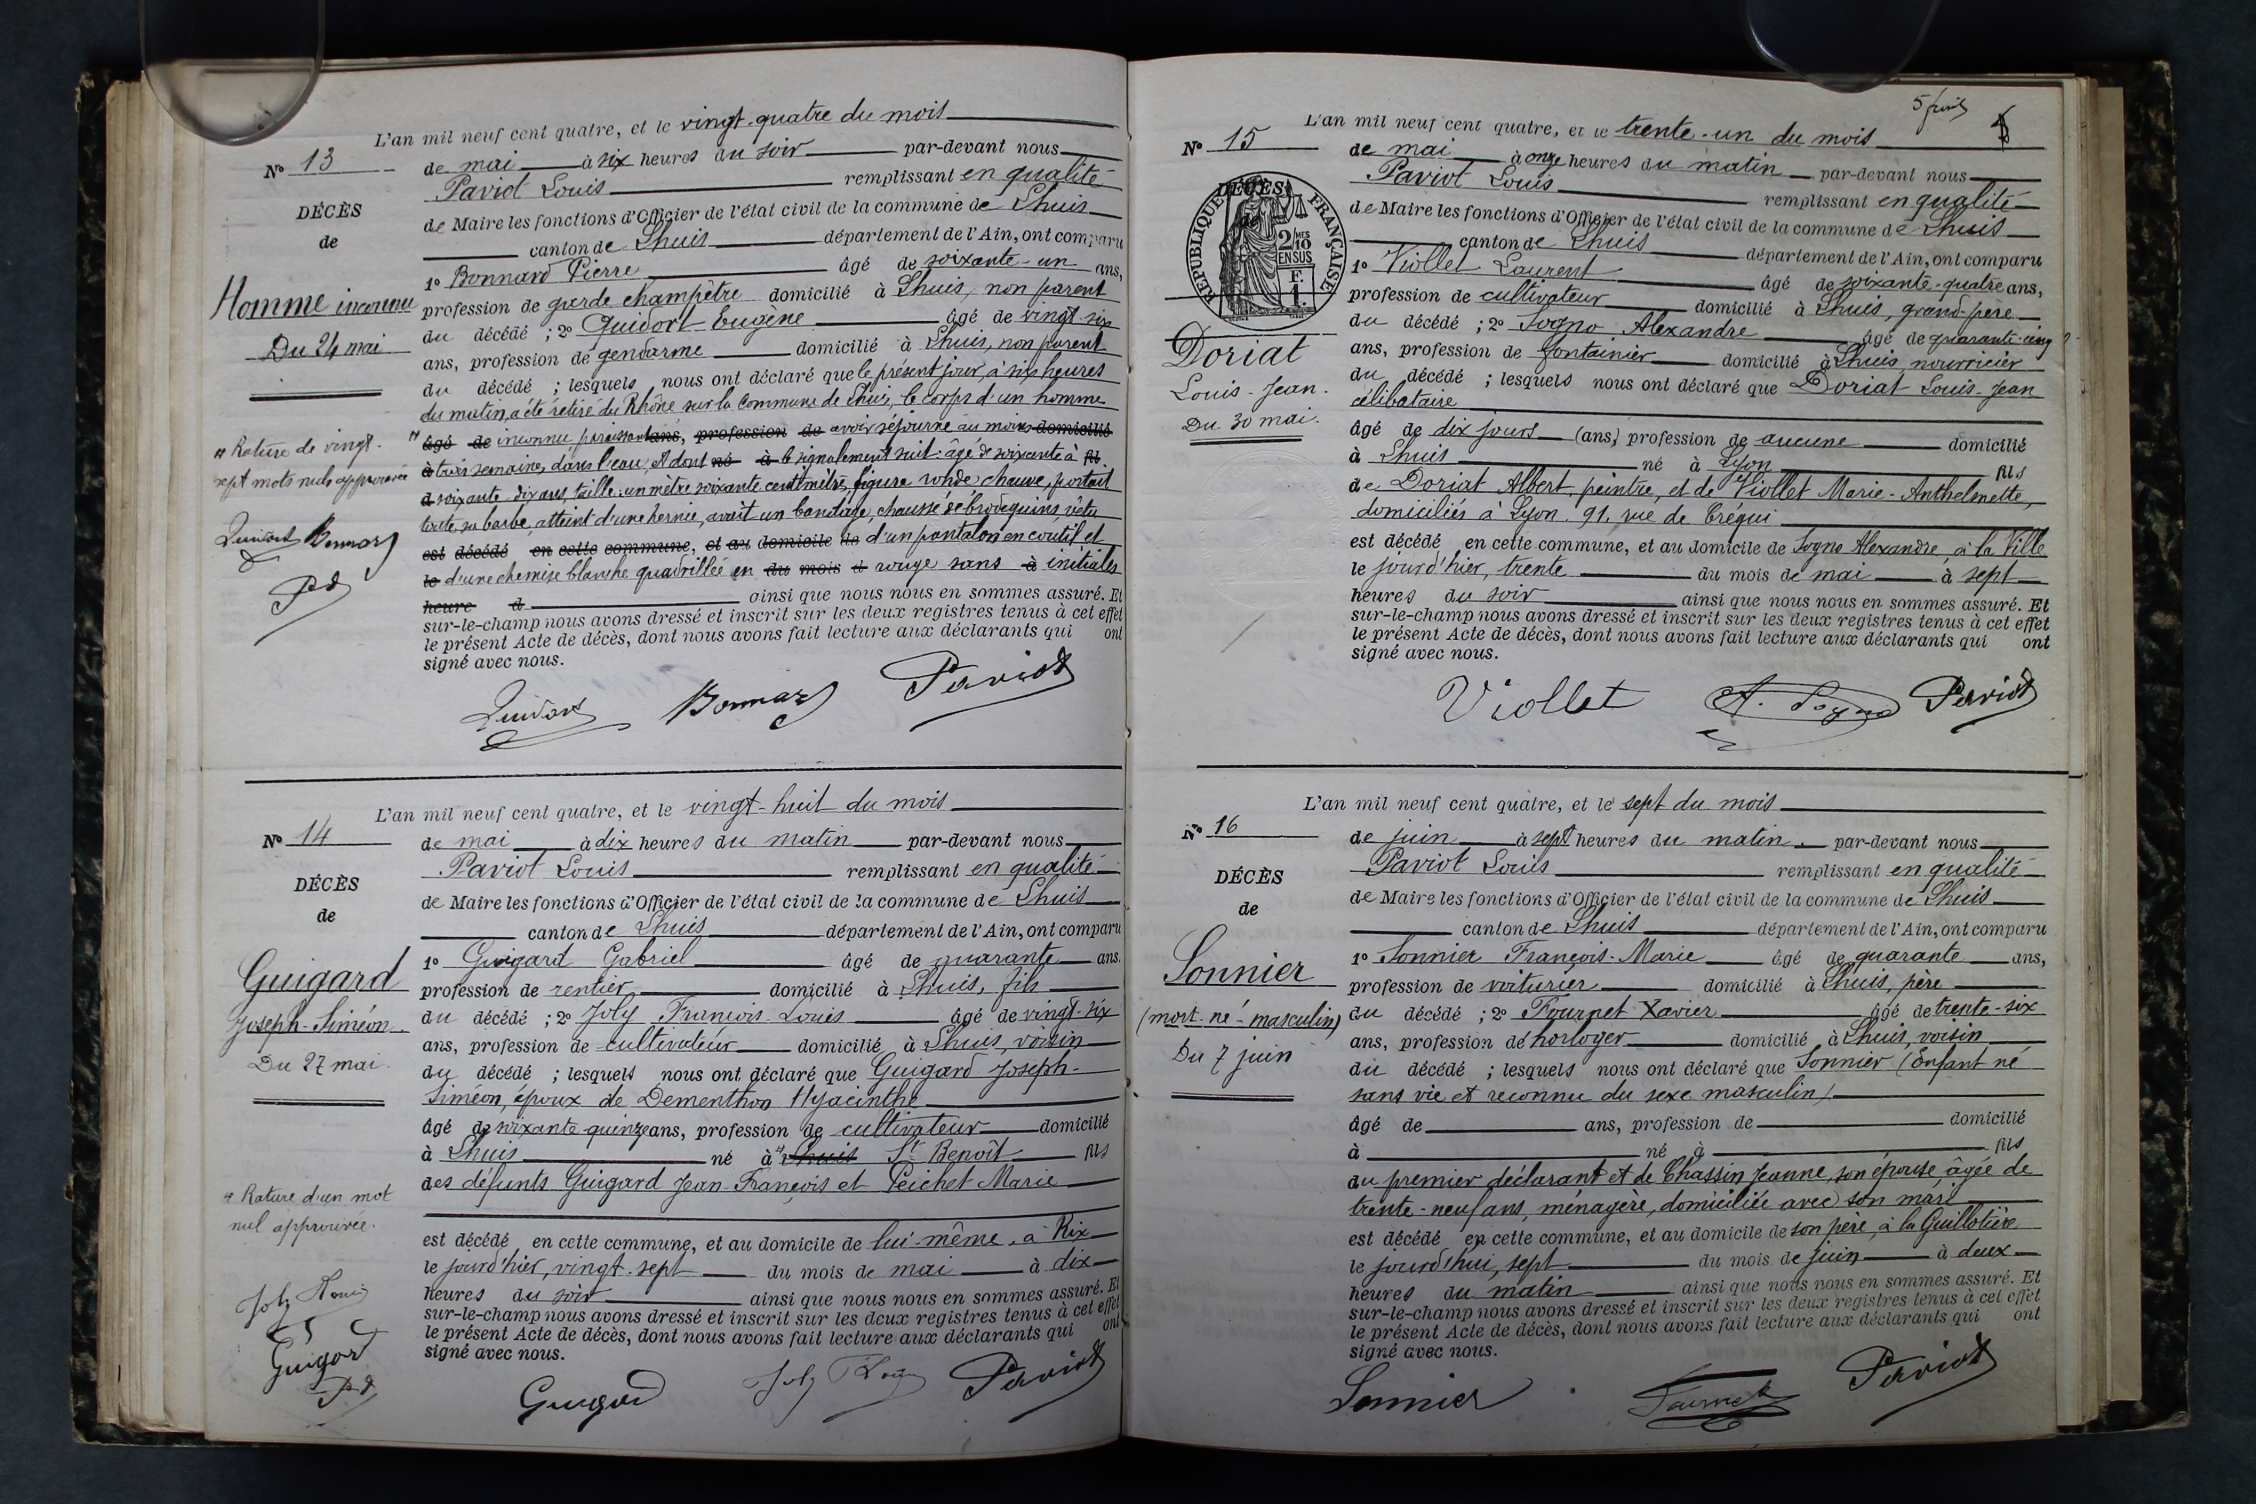 L'an mil neuf cent quatre, et le vingt-quatre du mois
N° 13
de mai à six heures du soir par-devant nous
Paviot Louis remplissant en qualité
DÉCÈS
de Maire les fonctions d'Officier de l'état civil de la commune de Lhuis
de
canton de Lhuis département de l'Ain, ont comparu
1° Bonnard Pierre âgé de soixante-un ans,
Homme inconnu
profession de garde champêtre domicilié à Lhuis, non parent
du décédé ; 2° Quidort Eugène âgé de vingt-six
Du 24 mai
ans, profession de gendarme domicilié à Lhuis, non parent
du décédé ; lesquels nous ont déclaré que le présent jour, à six heures
du matin, a été retiré du Rhône sur la commune de Lhuis, le corps d'un homme
âgé de inconnu paraissant ans, profession de avoir séjourné au moins domicilié
à trois semaines dans l'eau, et dont né à le signalement suit : âgé de soixante à fils
d soixante-dix ans, taille : un mètre soixante centimètres, figure ronde, chauve, portait
toute sa barbe, atteint d'une hernie, avait un bandage, chaussé de brodequins, vêtu
est décédé en cette commune, et au domicile de d'un pantalon en coutil et
le d'une chemise blanche quadrillée en du mois d rouge sans à initiales
heure d ainsi que nous nous en sommes assuré. Et
sur-le-champ nous avons dressé et inscrit sur les deux registres tenus à cet effet
le présent Acte de décès, dont nous avons fait lecture aux déclarants qui ont
signé avec nous.
Rature de vingt-
sept mots nuls approuvée
Quidort Bonnard
Pd
Quidort Bonnard Paviot
L'an mil neuf cent quatre, et le vingt-huit du mois
N° 14
de mai à dix heures du matin par-devant nous
Paviot Louis remplissant en qualité
DÉCÈS
de Maire les fonctions d'Officier de l'état civil de la commune de Lhuis
de
canton de Lhuis département de l'Ain, ont comparu
1° Guigard Gabriel âgé de quarante ans.
Guigard
profession de rentier domicilié à Lhuis, fils
Joseph-Siméon
du décédé ; 2° Joly François-Louis âgé de vingt-six
ans, profession de cultivateur domicilié à Lhuis, voisin
Du 27 mai.
du décédé ; lesquels nous ont déclaré que Guigard Joseph-
Siméon, époux de Dementhon Hyacinthe
âgé de soixante quinze ans, profession de cultivateur domicilié
à Lhuis né à Lhuis St Benoît fils
des défunts Guigard Jean-François et Peichet Marie
Rature d'un mot
nul approuvée.
est décédé en cette commune, et au domicile de lui-même, à Rix
le jourd'hier, vingt-sept du mois de mai à dix
heures du soir ainsi que nous nous en sommes assuré. Et
sur-le-champ nous avons dressé et inscrit sur les deux registres tenus à cet effet
le présent Acte de décès, dont nous avons fait lecture aux déclarants qui ont
signé avec nous.
Joly
Guigard
Pd
Guigard Joly Paviot
5 
L'an mil neuf cent quatre, et le trente-un du mois
N° 15
de mai à onze heures du matin par-devant nous
Paviot Louis remplissant en qualité
DÉCÈS
de Maire les fonctions d'Officier de l'état civil de la commune de Lhuis
RÉPUBLIQUE FRANÇAISE
2 MES 10 EN SUS
F. 1.
canton de Lhuis département de l'Ain, ont comparu
1° Viollet Laurent âgé de soixante-quatre ans,
profession de cultivateur domicilié à Lhuis, grand-père
du décédé ; 2° Sogno Alexandre âgé de quarante-cinq
Doriat
ans, profession de fontainier domicilié à Lhuis, nourricier
Louis-Jean.
du décédé ; lesquels nous ont déclaré que Doriat Louis-Jean
célibataire
Du 30 mai.
âgé de dix jours (ans) profession de aucune domicilié
à Lhuis né à Lyon fils
de Doriat Albert, peintre, et de Viollet Marie-Anthelmette,
domiciliés à Lyon, 91, rue de Créqui
est décédé en cette commune, et au domicile de Sogno Alexandre, à la Ville
le jourd'hier, trente du mois de mai à sept
heures du soir ainsi que nous nous en sommes assuré. Et
sur-le-champ nous avons dressé et inscrit sur les deux registres tenus à cet effet
le présent Acte de décès, dont nous avons fait lecture aux déclarants qui ont
signé avec nous.
Viollet A. Sogno Paviot
L'an mil neuf cent quatre, et le sept du mois
N° 16
de juin à sept heures du matin par-devant nous
Paviot Louis remplissant en qualité
DÉCÈS
de Maire les fonctions d'Officier de l'état civil de la commune de Lhuis
de
canton de Lhuis département de l'Ain, ont comparu
1° Sonnier François-Marie âgé de quarante ans,
Sonnier
profession de voiturier domicilié à Lhuis, père
(mort-né-masculin)
du décédé ; 2° Fournet Xavier âgé de trente-six
ans, profession de horloger domicilié à Lhuis, voisin
Du 7 juin
du décédé ; lesquels nous ont déclaré que Sonnier (Enfant né
sans vie et reconnu du sexe masculin)
âgé de ans, profession de domicilié
à né à fils
du premier déclarant et de Chassin Jeanne, son épouse, âgée de
trente-neuf ans, ménagère, domiciliée avec son mari
est décédé en cette commune, et au domicile de son père, à la Guillotière
le jourd'hui, sept du mois de juin à deux
heures du matin ainsi que nous nous en sommes assuré. Et
sur-le-champ nous avons dressé et inscrit sur les deux registres tenus à cet effet
le présent Acte de décès, dont nous avons fait lecture aux déclarants qui ont
signé avec nous.
Sonnier Fournet Paviot